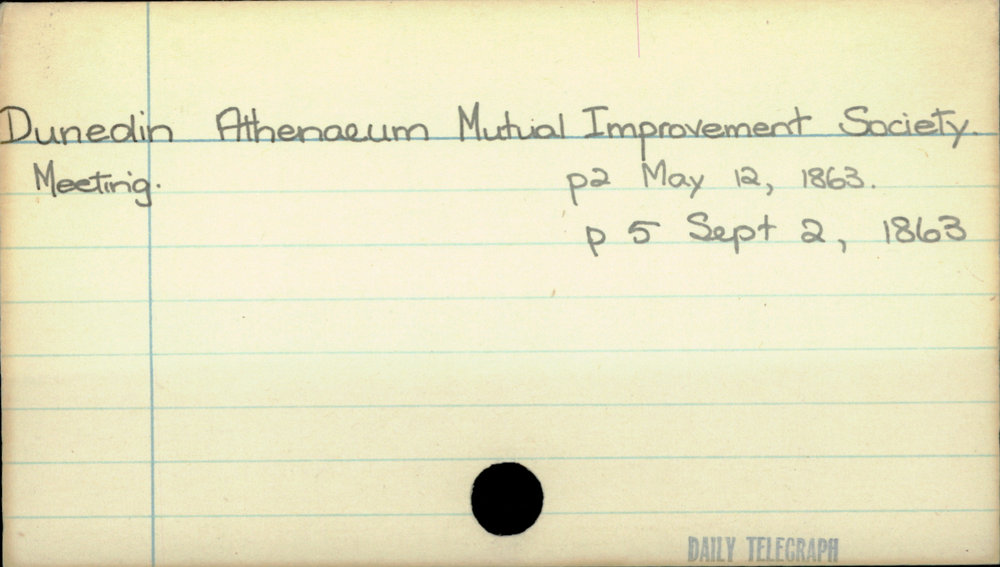 Dunedin Athenaeum Mutual Improvement Society.
Meeting. p2 May 12, 1863.
p 5 Sept 2, 1863
DAILY TELEGRAPH